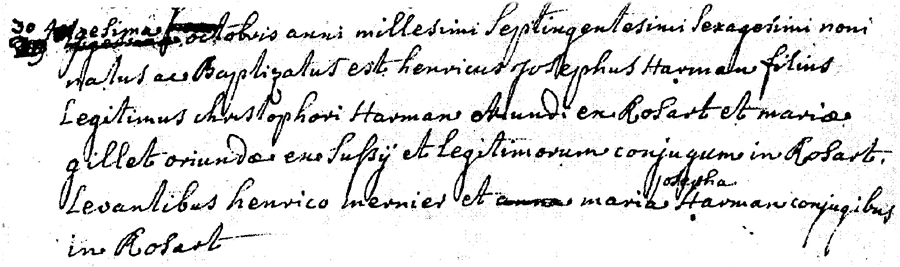 30 octobris anni millesimi Septingentesimi Sexagesimi noni
natus ac Baptizatus est henricus Josephus Harman filius
Legitimus christophori Harman oriundi ex Rosart et mariæ
gillet oriundæ ex Sussÿ et legitimorum conjugum in Rosart.
Levantibus henrico mernier et anna maria josepha Harman conjugibus
in Rosart